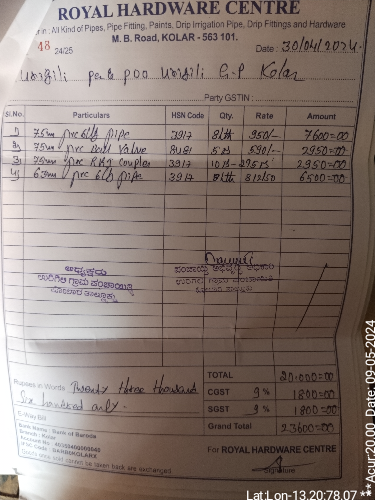 ROYAL HARDWARE CENTRE
in : All Kind of Pipes, Pipe Fitting, Paints, Drip Irrigation Pipe, Drip Fittings and Hardware
M. B. Road, KOLAR - 563 101.
48 24/25 Date : 30/04/2024
G.P Kolar
Party GSTIN :
Sl.No. Particulars HSN Code Qty. Rate Amount
1) 75mm pvc pipe 3917 950/- 7600=00
2) 75mm pvc Ball Valve 8481 5 590/- 2950=00
3) 75mm pvc Coupler 3917 10 2950=00
4) 63mm pvc pipe 3917 812/50 6500=00
ಅಧ್ಯಕ್ಷರು
ಪಂಚಾಯ್ತಿ ಅಭಿವೃದ್ಧಿ ಅಧಿಕಾರಿ
ಗ್ರಾಮ ಪಂಚಾಯಿತಿ
TOTAL 20,000=00
CGST 9% 1800=00
SGST 9% 1800=00
Grand Total 23600=00
Rupees in Words Twenty three thousand
Six hundred only -
E-Way Bill
Bank Name : Bank of Baroda
Branch : Kolar
For ROYAL HARDWARE CENTRE
Goods once sold cannot be taken back are exchanged
Signature
Lat:Lon-13.20:78.07
**Acur:20.00, Date:09-05-2024